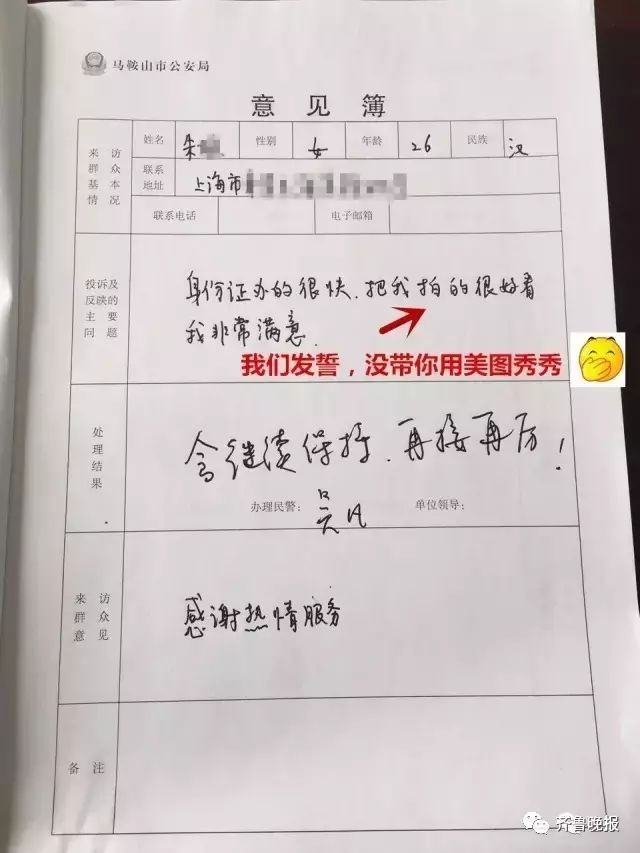 马鞍山市公安局
意见簿
来访群众基本情况
姓名 朱 性别 女 年龄 26 民族 汉
联系地址 上海市
联系电话 电子邮箱
投诉及反映的主要问题
身份证办的很快、把我拍的很好看
我非常满意.
我们发誓，没带你用美图秀秀
处理结果
会继续保持、再接再厉！
办理民警： 吴凡 单位领导：
来访群众意见
感谢热情服务
备注
齐鲁晚报